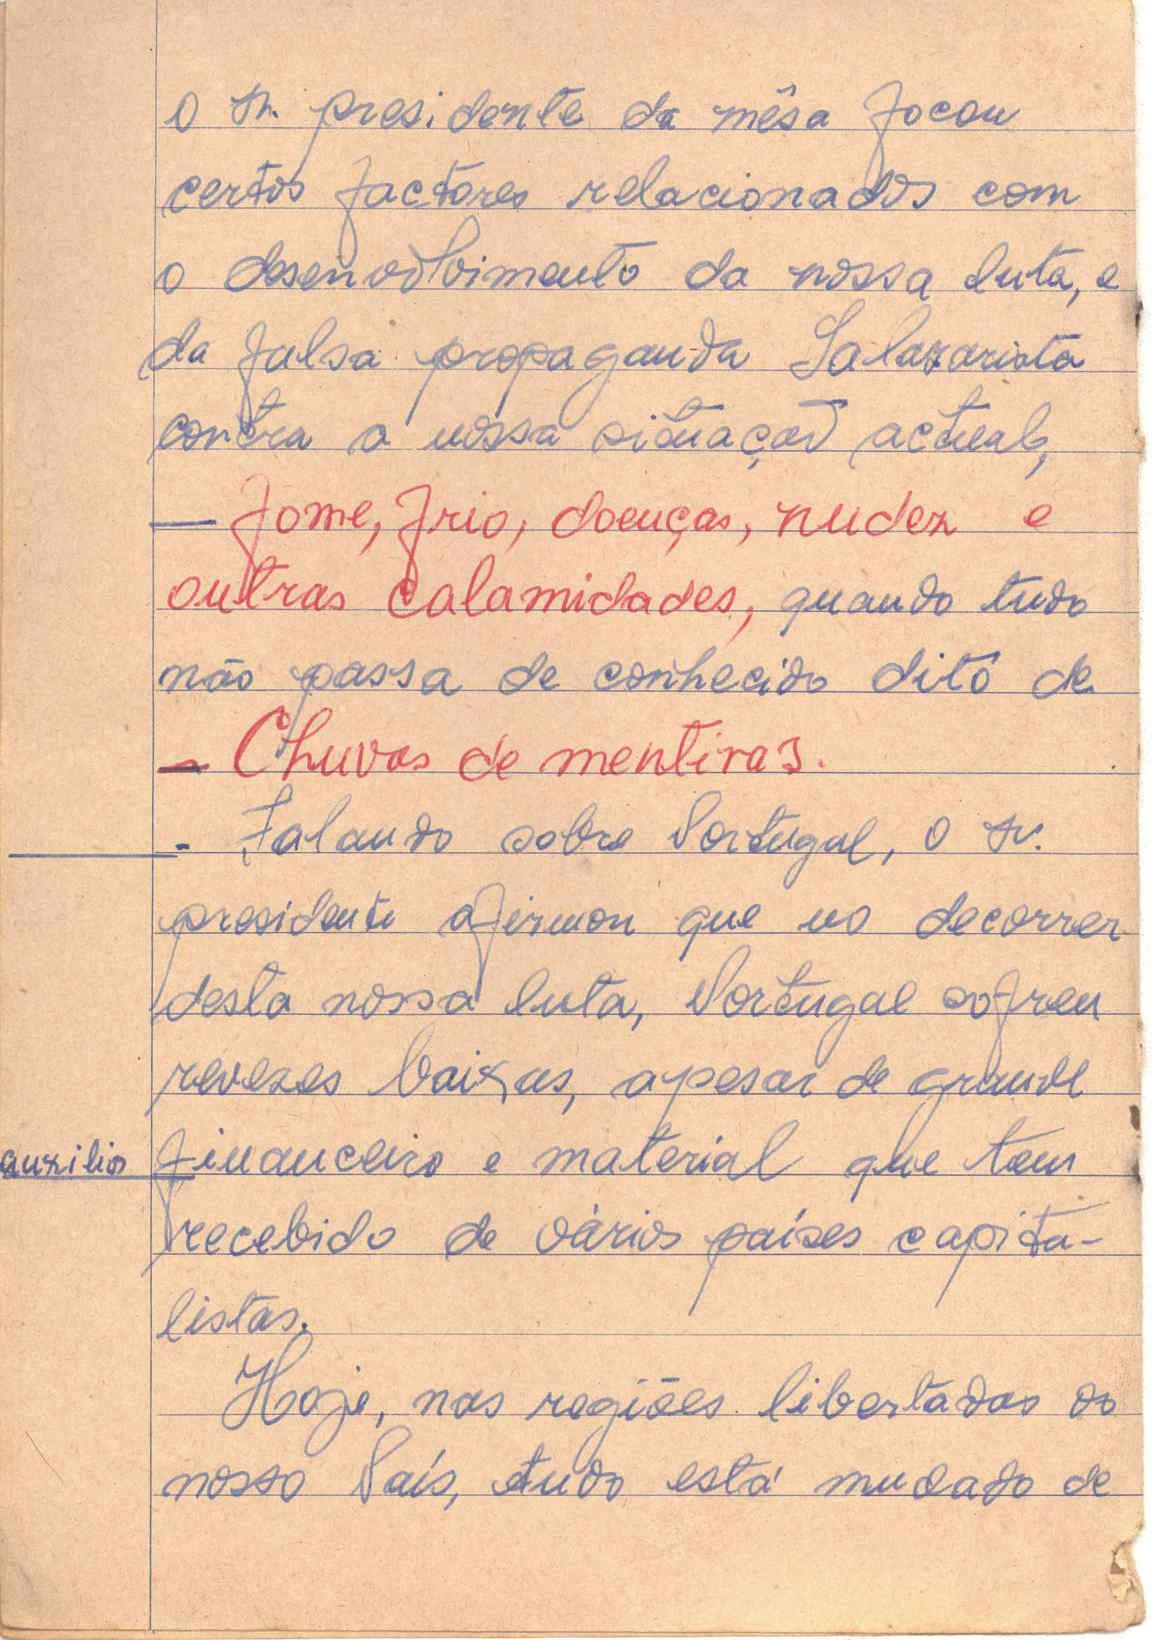 o sr. presidente da mêsa focou
certos factores relacionados com
o desenvolvimento da nossa luta, e
da falsa propaganda Salazarista
contra a nossa situação actual,
— fome, frio, doenças, nudez e
outras calamidades, quando tudo
não passa de conhecido dito de
— Chuvas de mentiras.
- Falando sobre Portugal, o sr.
presidente afirmou que no decorrer
desta nossa luta, Portugal sofreu
revezes baixas, apesar de grande
auxilios financeiro e material que tem
recebido de vários países capita-
listas.
Hoje, nas regiões libertadas do
nosso País, tudo está mudado de